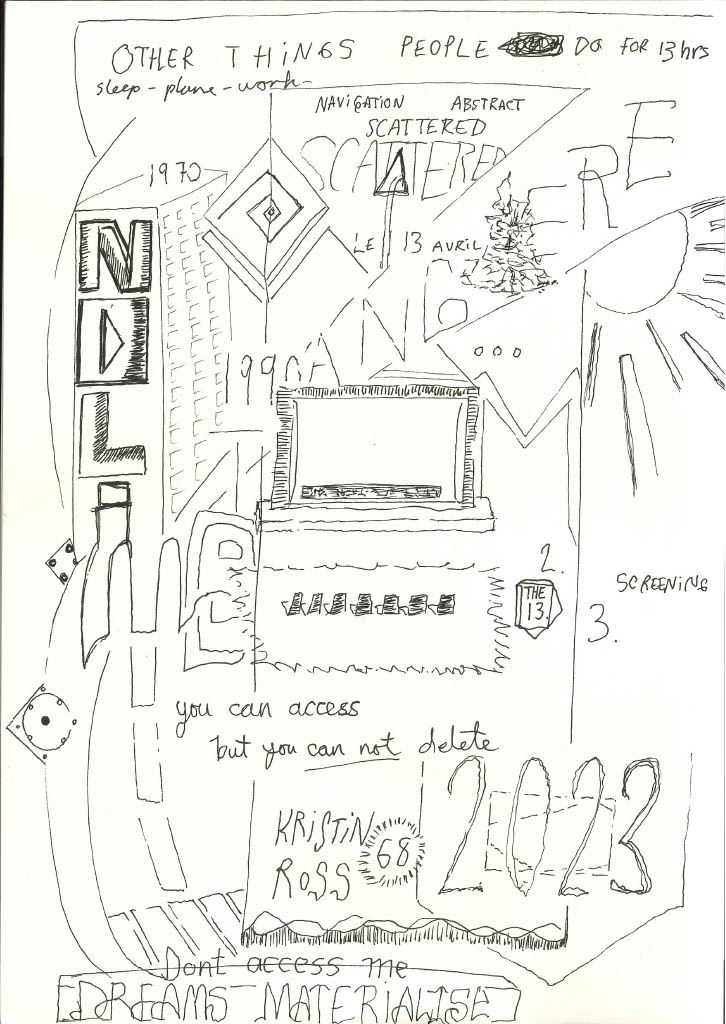 OTHER THINGS PEOPLE DO FOR 13 hrs
sleep - plane - work -
NAVIGATION ABSTRACT
SCATTERED
SCATTERED
ERE
1970
LE 13 AVRIL
N
D
L
1990
2.
THE
13.
SCREENING
3.
you can access
but you can not delete
2023
KRISTIN
ROSS
68
Dont access me
DREAMS MATERIALISE